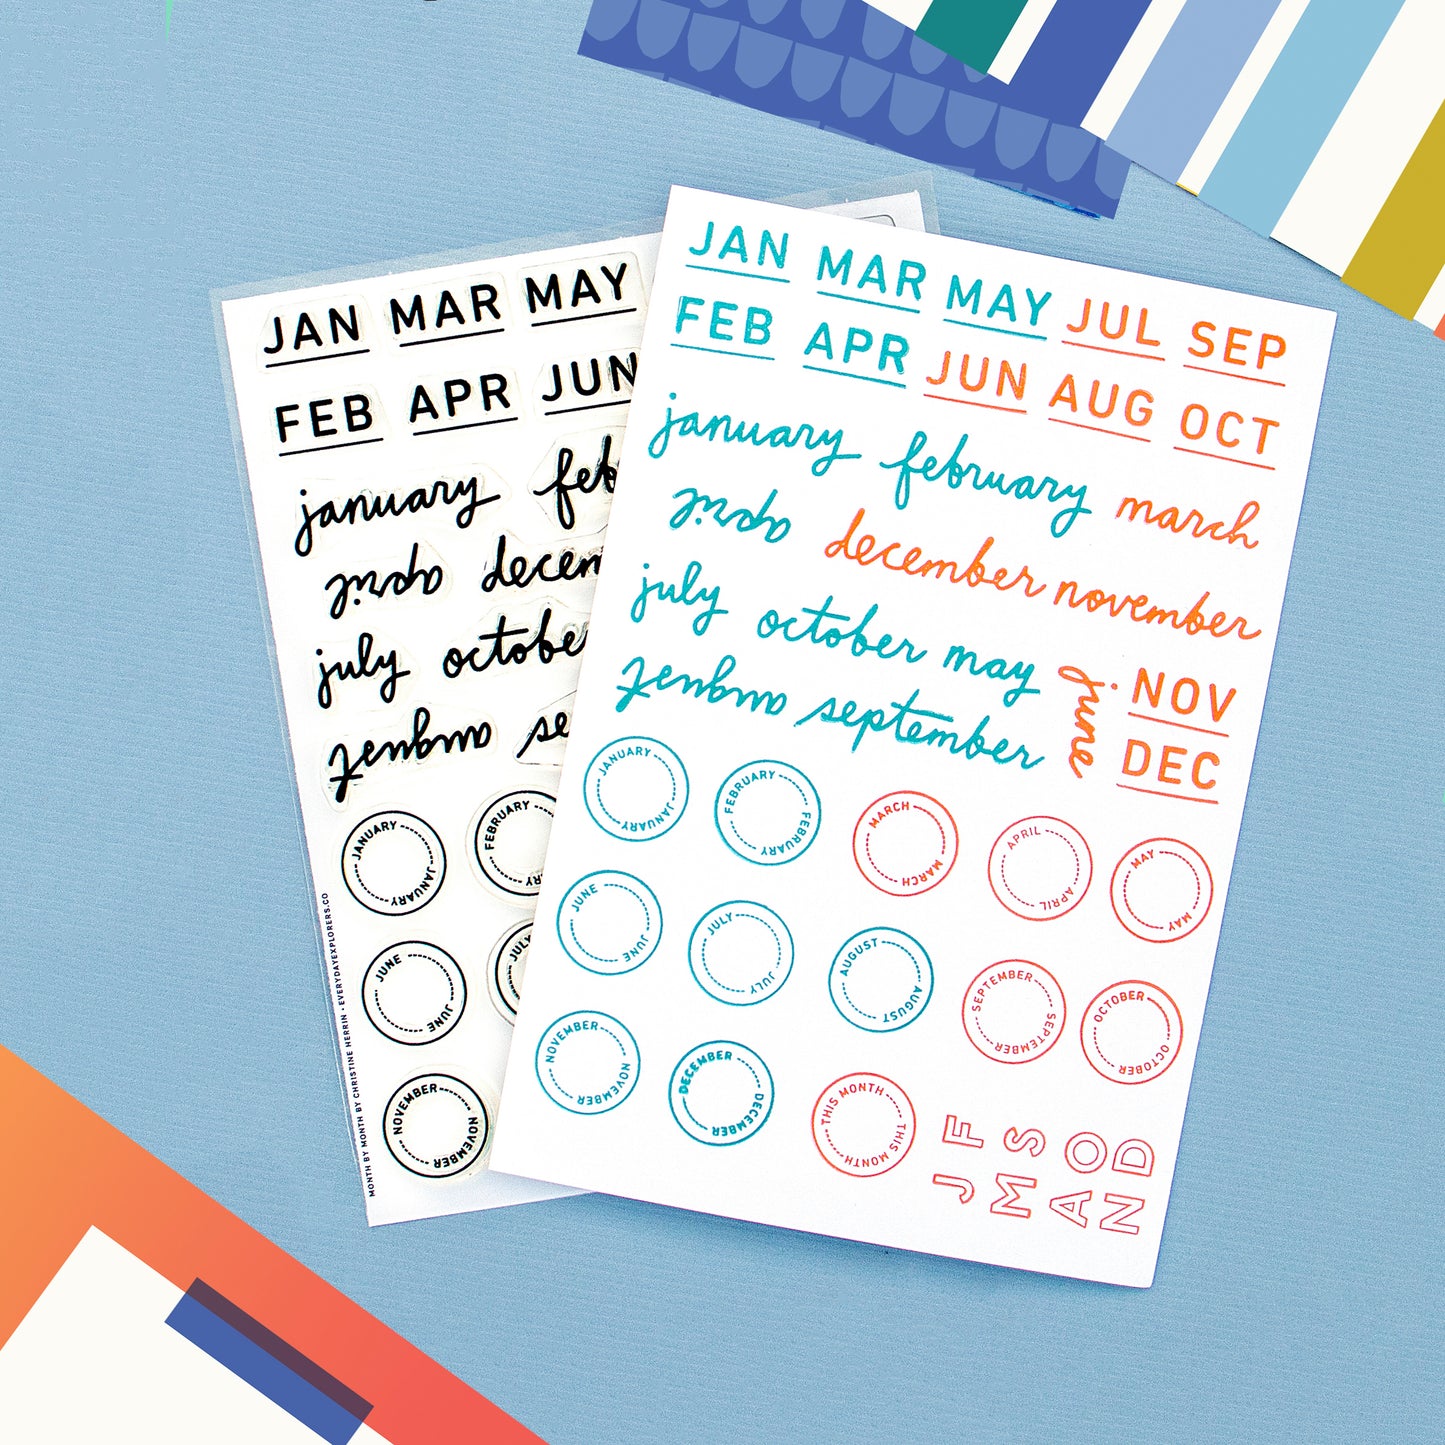 JAN MAR MAY
FEB APR JUN
january feb
april decem
july octobe
august se
JANUARY JANUARY
FEBRUARY RY
JUNE JUNE
JULY
NOVEMBER NOVEMBER
MONTH BY MONTH BY CHRISTINE HERRIN • EVERYDAYEXPLORERS.CO
JAN MAR MAY JUL SEP
FEB APR JUN AUG OCT
january february march
april december november
july october may june
august september
NOV
DEC
JANUARY JANUARY JANUARY
FEBRUARY FEBRUARY FEBRUARY
MARCH MARCH MARCH
APRIL APRIL APRIL
MAY MAY MAY
JUNE JUNE JUNE
JULY JULY JULY
AUGUST AUGUST AUGUST
SEPTEMBER SEPTEMBER SEPTEMBER
OCTOBER OCTOBER OCTOBER
NOVEMBER NOVEMBER NOVEMBER
DECEMBER DECEMBER DECEMBER
THIS MONTH THIS MONTH THIS MONTH
J F
M S
A O
N D